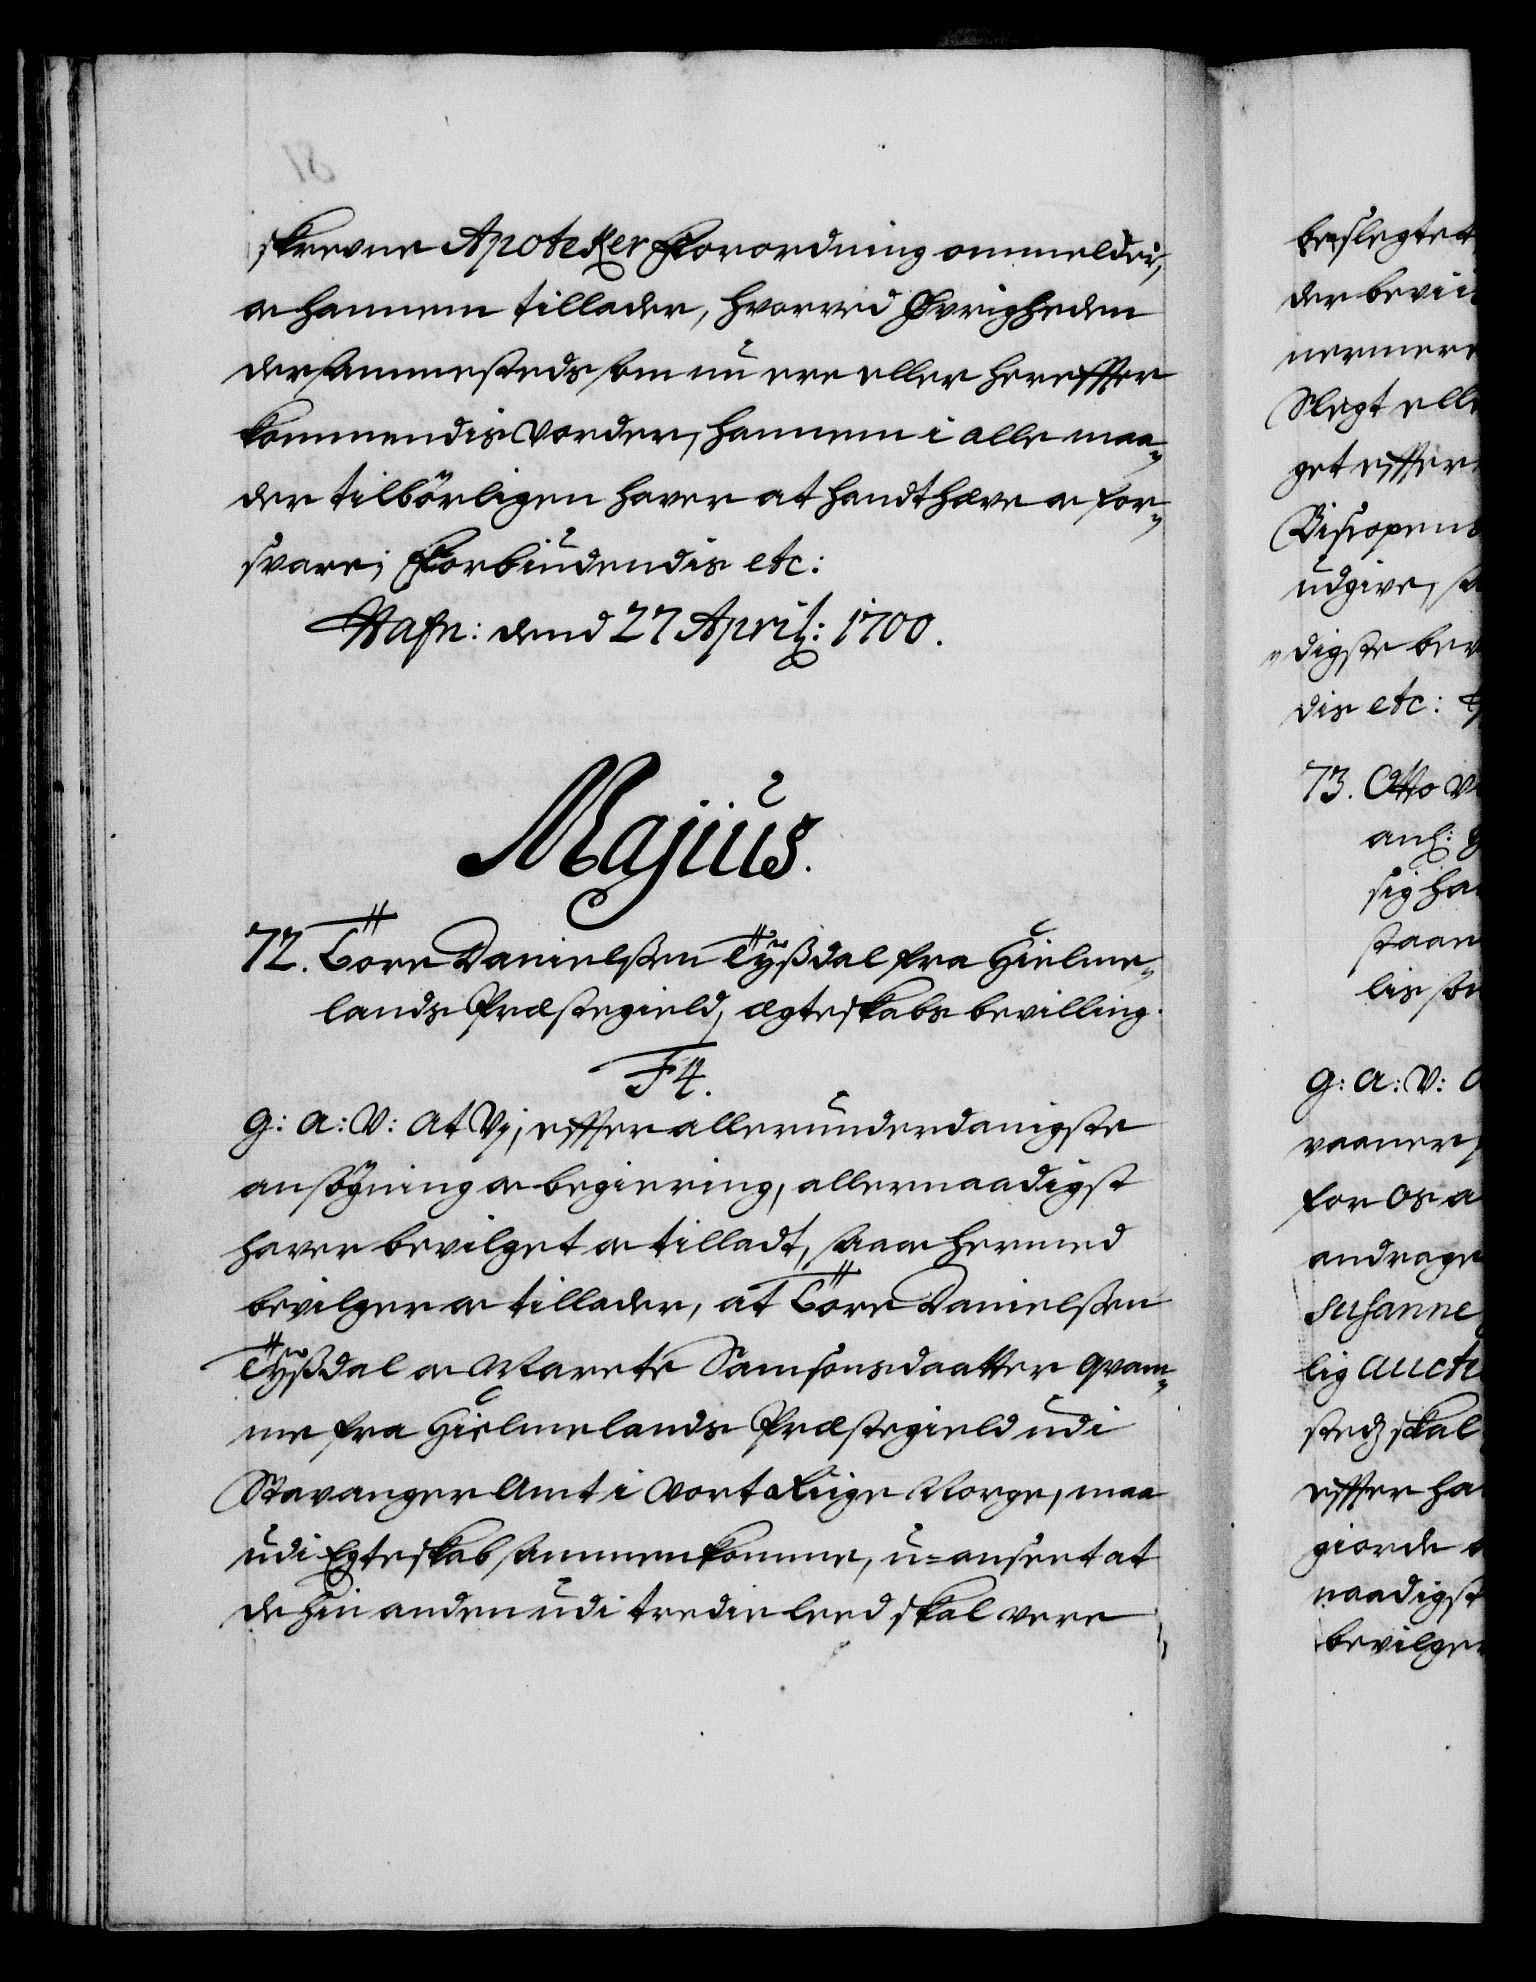 skrevne Apoteker Forordning ommelder,
oc hannem tillader, hvorved Øvrigheden
dersammesteds som nu ere eller herefter
kommendis vorder, hannem i alle maa„
der tilbörligen haver at handthæve oc for„
svare; Forbiudendis etc:
Hafn: dend 27 Apriℓ: 1700.
Majus.
72. Tore Danielssen Tyßdal fra Hielme„
lands Præstegield, ægteskabs bevilling.
F4.
G: A: V: At Vj, efter allerunderdanigste
ansögning oc begiering, allernaadigst
haver bevilget oc tilladt, saa oc hermed
bevilger oc tillader, at Tore Danielssen
Tyßdal oc Marete Samsonsdaatter Qvam„
me fra Hielmelands Præstegield udi
Stavanger Amt i vort Riige Norge, maa
udi Egteskab sammenkomme, u=anseet at
de hin anden udi tredie leed skal vere
beslegtet
der bevii
nermere
Slegt elle
get efter
Biscopens
udgive,
digste bev
dis etc:
73. Otto
anℓ:
sig ha
staan
lis
G: A: V:
vaaner
for Os a
andrage
Susanne
lig Auct
sted skal
efter ha
giorde
naadigst
bevilger